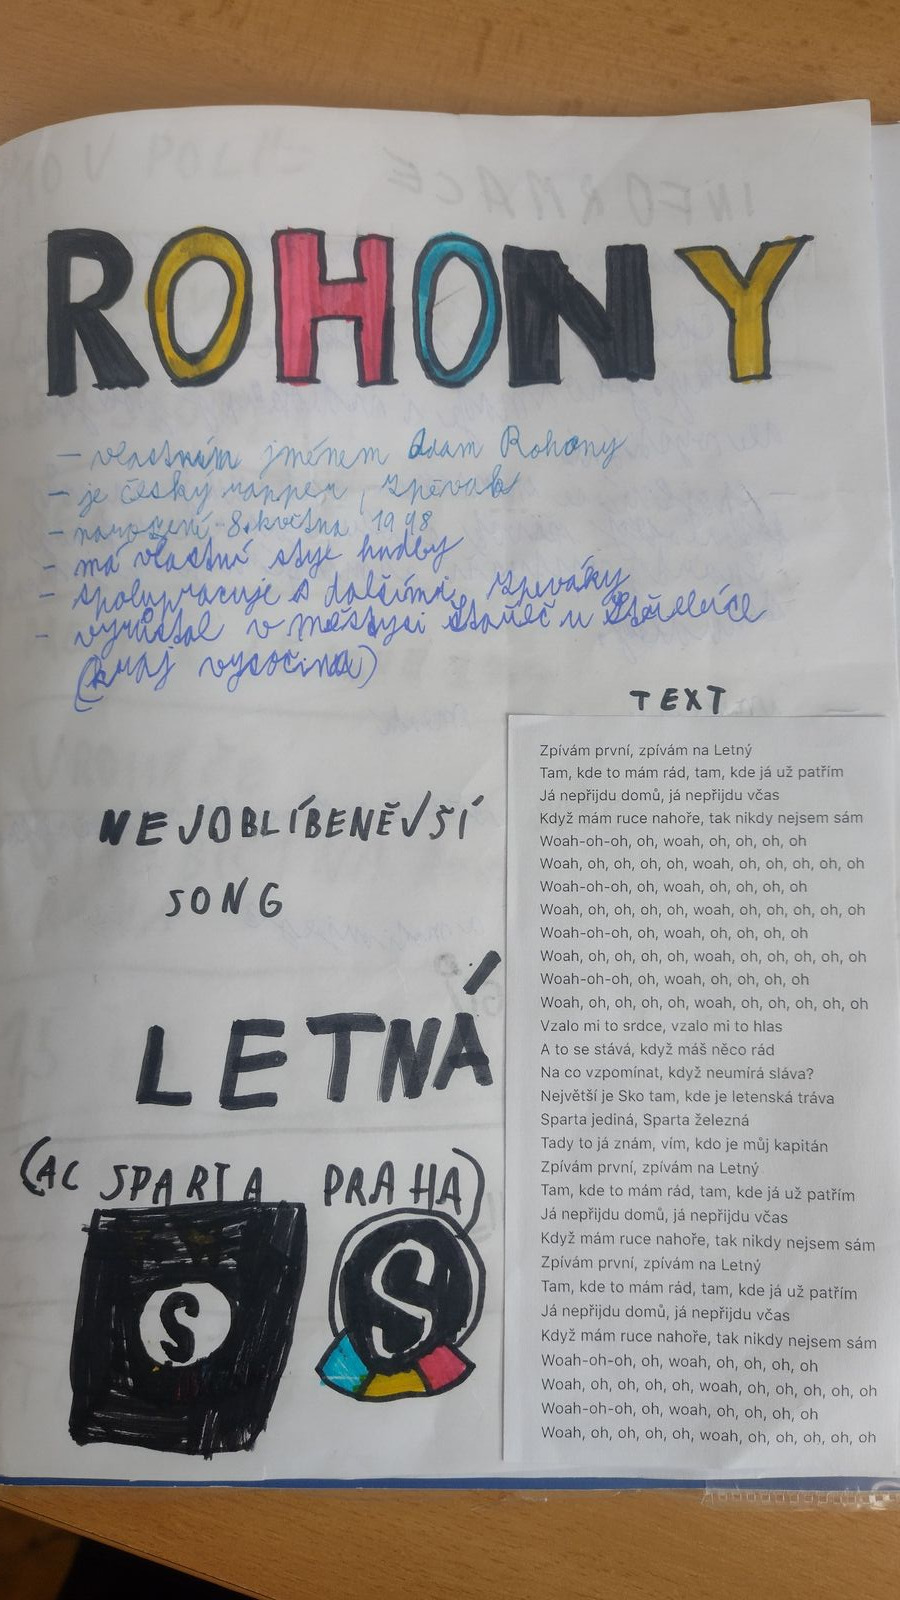 ROHONY
- vlastním jménem Adam Rohony
- je český rapper, zpěvák
- narození 8. května 1998
- má vlastní styl hudby
- spolupracuje s dalšími zpěváky
- vyrůstal v městysi Stařeč u
(kraj vysočina)
NEJOBLÍBENĚJŠÍ
SONG
LETNÁ
(AC SPARTA PRAHA)
S
S
TEXT
Zpívám první, zpívám na Letný
Tam, kde to mám rád, tam, kde já už patřím
Já nepřijdu domů, já nepřijdu včas
Když mám ruce nahoře, tak nikdy nejsem sám
Woah-oh-oh, oh, woah, oh, oh, oh, oh
Woah, oh, oh, oh, oh, woah, oh, oh, oh, oh, oh
Woah-oh-oh, oh, woah, oh, oh, oh, oh
Woah, oh, oh, oh, oh, woah, oh, oh, oh, oh, oh
Woah-oh-oh, oh, woah, oh, oh, oh, oh
Woah, oh, oh, oh, oh, woah, oh, oh, oh, oh, oh
Woah-oh-oh, oh, woah, oh, oh, oh, oh
Woah, oh, oh, oh, oh, woah, oh, oh, oh, oh, oh
Vzalo mi to srdce, vzalo mi to hlas
A to se stává, když máš něco rád
Na co vzpomínat, když neumírá sláva?
Největší je Sko tam, kde je letenská tráva
Sparta jediná, Sparta železná
Tady to já znám, vím, kdo je můj kapitán
Zpívám první, zpívám na Letný
Tam, kde to mám rád, tam, kde já už patřím
Já nepřijdu domů, já nepřijdu včas
Když mám ruce nahoře, tak nikdy nejsem sám
Zpívám první, zpívám na Letný
Tam, kde to mám rád, tam, kde já už patřím
Já nepřijdu domů, já nepřijdu včas
Když mám ruce nahoře, tak nikdy nejsem sám
Woah-oh-oh, oh, woah, oh, oh, oh, oh
Woah, oh, oh, oh, oh, woah, oh, oh, oh, oh, oh
Woah-oh-oh, oh, woah, oh, oh, oh, oh
Woah, oh, oh, oh, oh, woah, oh, oh, oh, oh, oh